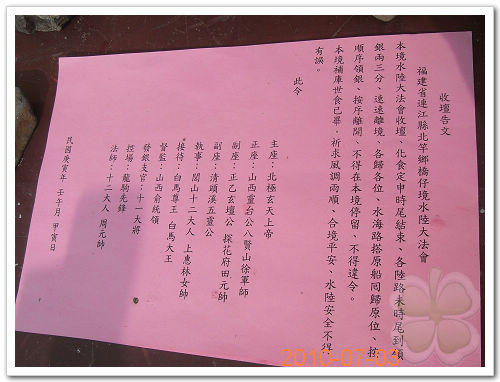 收壇告文
福建省連江縣北竿鄉橋仔境水陸大法會
本境水陸大法會收壇、化食定申時尾結束、各陸路未時尾到領
銀兩三分、速速離境、各歸各位、水海路搭原船同歸原位、按
順序領銀、按序離開、不得在本境停留、不得違令。
本境補庫世食已畢、祈求風調雨順、合境平安、水陸安全不得
有誤。
此令
主座：北極玄天上帝
正座：山西靈台公 賢山徐軍師
副座：正乙玄壇公 探花府田元帥
副座：清頭溪五靈公
執事：閭山十二大人 上惠林女帥
接待：白馬尊王 白馬大王
督監：山西俞統領
發銀支官：十一大將
控場：龍駒先鋒
法師：十二大人 周元帥
民國庚寅年 壬午月 甲寅日
2010-07-03